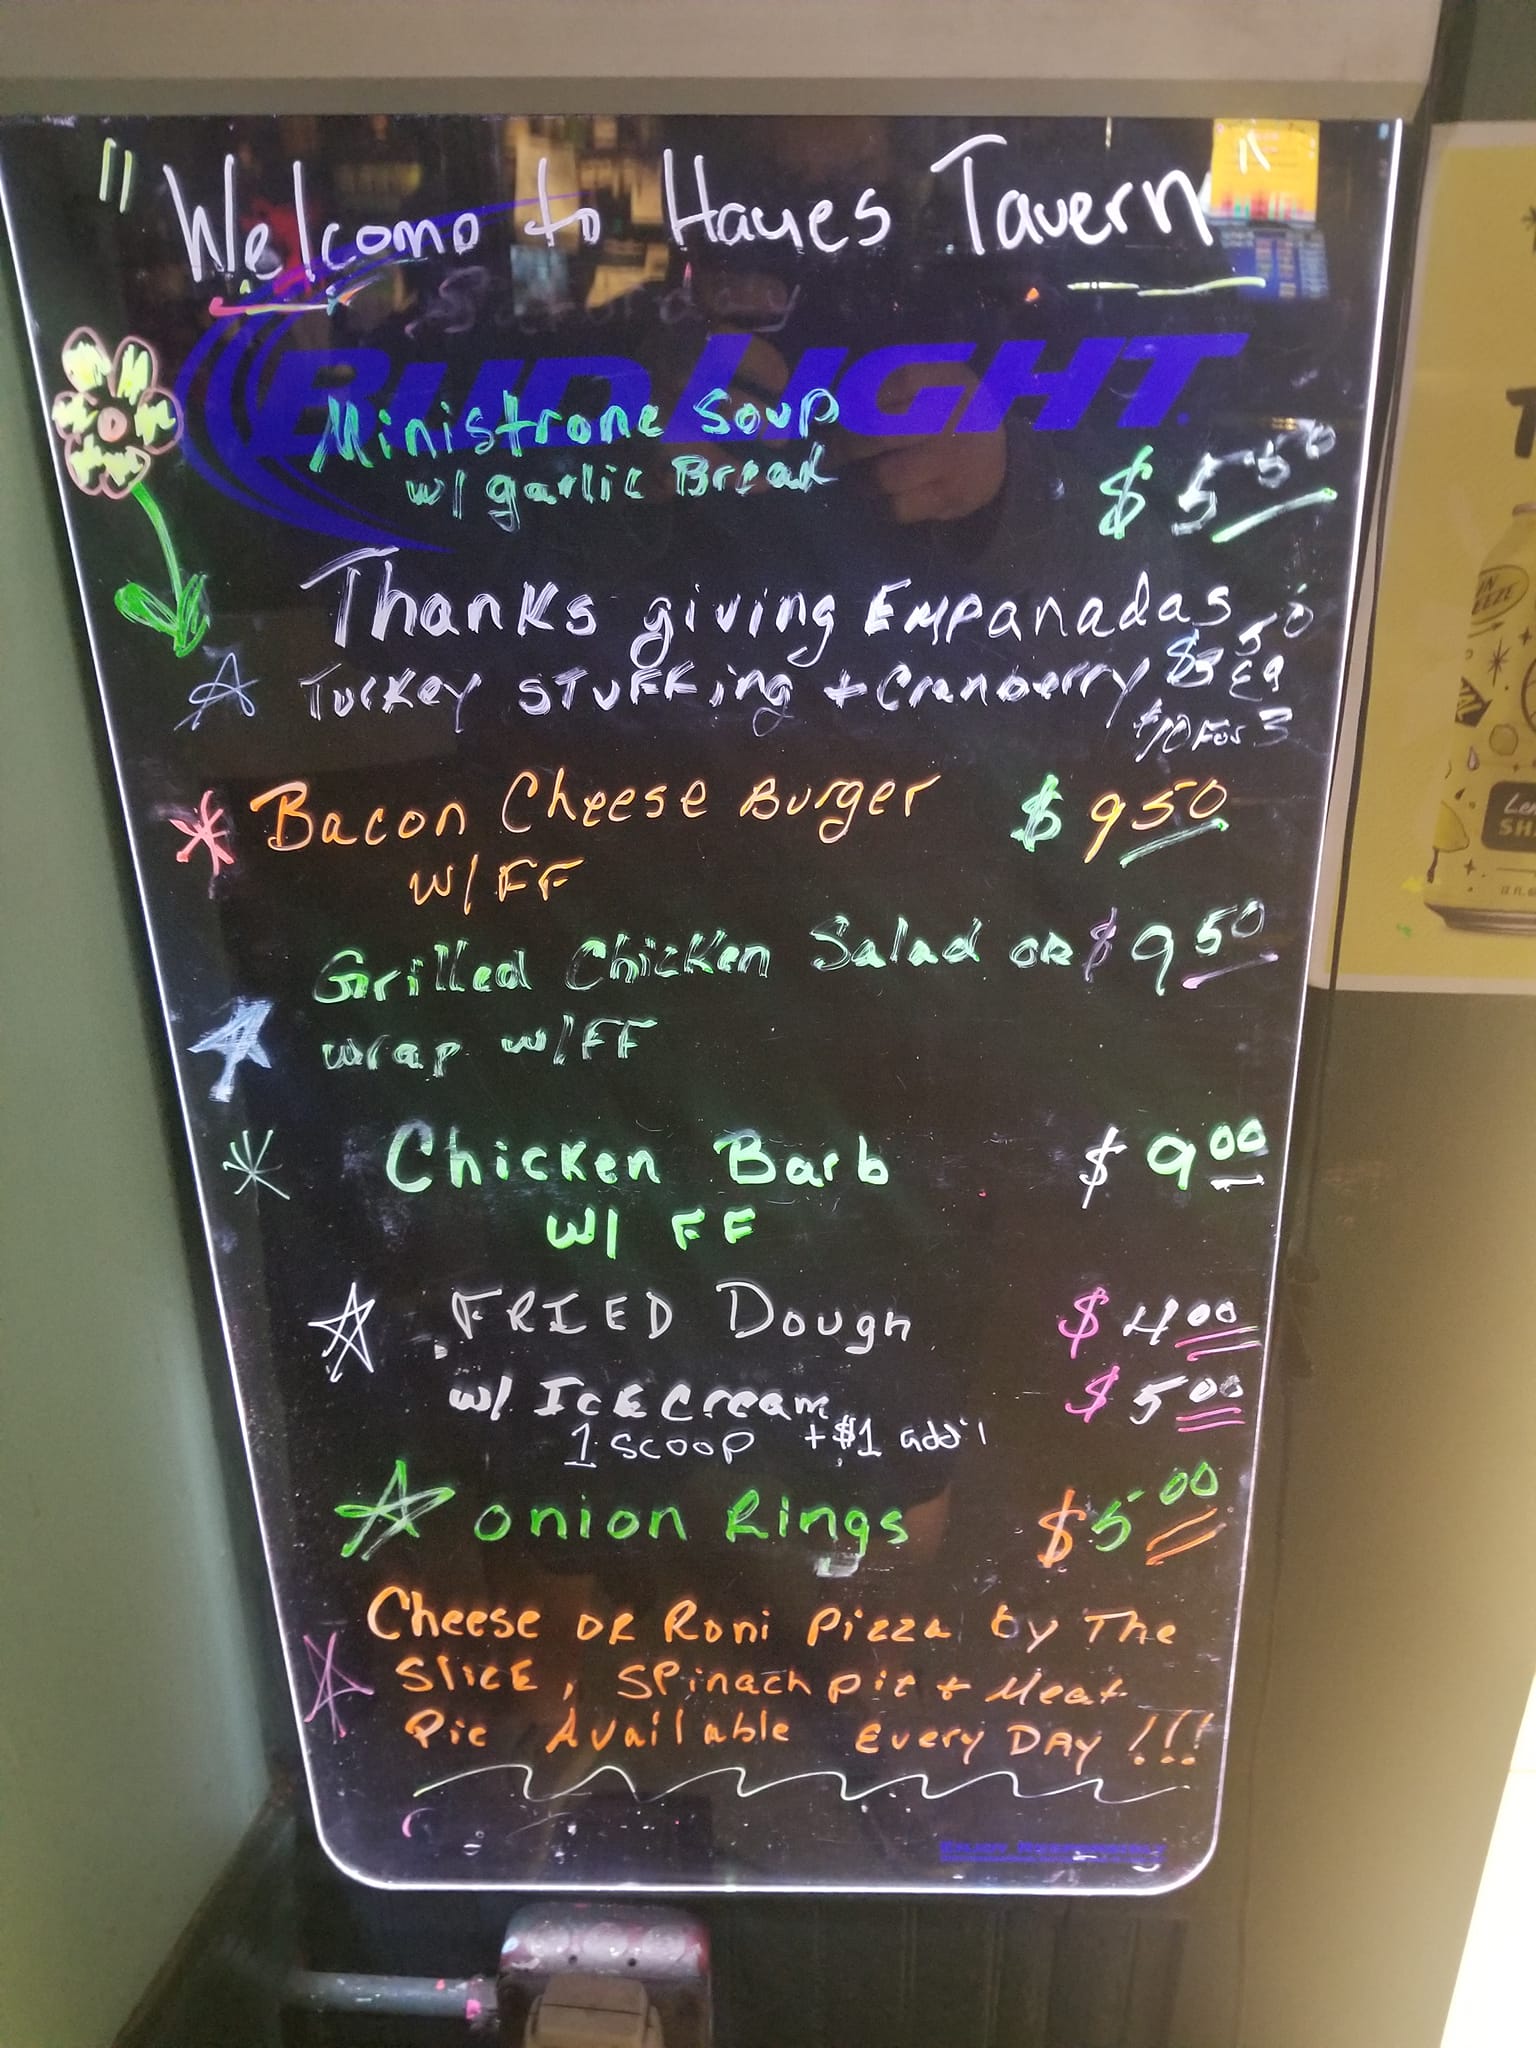 "Welcome to Hayes Tavern"
BUD LIGHT
Ministrone Soup
w/ garlic Bread $5.50
Thanksgiving Empanadas
Turkey Stuffing + Cranberry $3.50 Ea
$10 For 3
Bacon Cheese Burger $9.50
W/ FF
Grilled Chicken Salad or $9.50
wrap w/FF
Chicken Barb $9.00
W/ FF
FRIED Dough $4.00
w/ Ice Cream $5.00
1 SCOOP +$1 add'l
onion Rings $5.00
Cheese or Roni Pizza by The
Slice, Spinach pie + Meat
Pie Available Every Day!!!